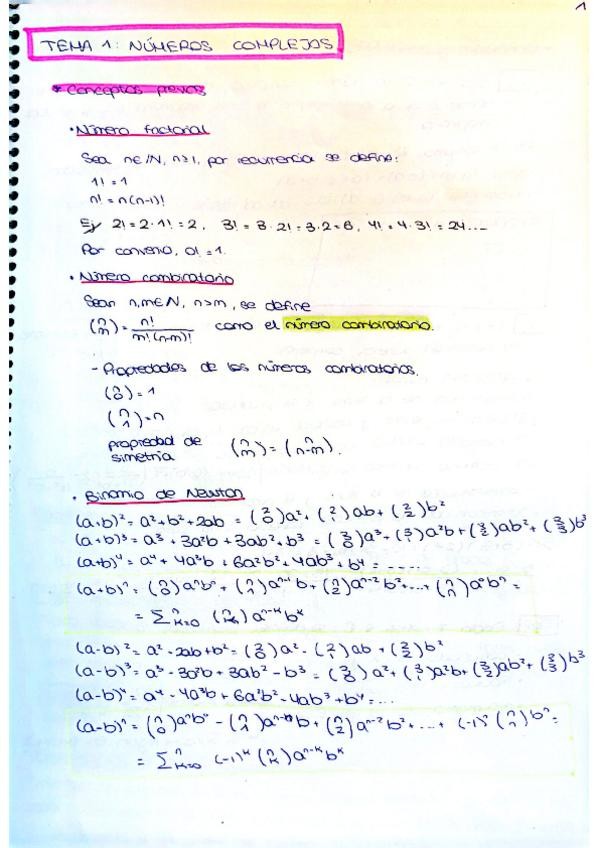 1
TEMA 1: NÚMEROS COMPLEJOS
* Conceptos previos
• Número factorial
Sea n∈ℕ, n≥1, por recurrencia se define:
1! = 1
n! = n(n-1)!
Ej 2! = 2·1! = 2, 3! = 3·2! = 3·2 = 6, 4! = 4·3! = 24...
Por convenio, 0! = 1.
• Número combinatorio
Sean n,m∈ℕ, n>m, se define
(n m) = n! / m!(n-m)! como el número combinatorio.
- Propiedades de los números combinatorios.
(n 0) = 1
(n 1) = n
propiedad de simetría (n m) = (n n-m).
• Binomio de Newton
(a+b)² = a²+b²+2ab = (2 0)a² + (2 1)ab + (2 2)b²
(a+b)³ = a³+3a²b+3ab²+b³ = (3 0)a³ + (3 1)a²b + (3 2)ab² + (3 3)b³
(a+b)⁴ = a⁴+4a³b+6a²b²+4ab³+b⁴ = ....
(a+b)ⁿ = (n 0)aⁿb⁰ + (n 1)aⁿ⁻¹b + (n 2)aⁿ⁻²b² + ... + (n n)a⁰bⁿ =
= Σⁿₖ₌₀ (n k) aⁿ⁻ᵏbᵏ
(a-b)² = a²-2ab+b² = (2 0)a² - (2 1)ab + (2 2)b²
(a-b)³ = a³-3a²b+3ab²-b³ = (3 0)a² + (3 1)a²b + (3 2)ab² + (3 3)b³
(a-b)⁴ = a⁴-4a³b+6a²b²-4ab³+b⁴ = ...
(a-b)ⁿ = (n 0)aⁿb⁰ - (n 1)aⁿ⁻¹b + (n 2)aⁿ⁻²b² + ... + (-1)ⁿ(n n)bⁿ =
= Σⁿₖ₌₀ (-1)ᵏ (n k) aⁿ⁻ᵏbᵏ